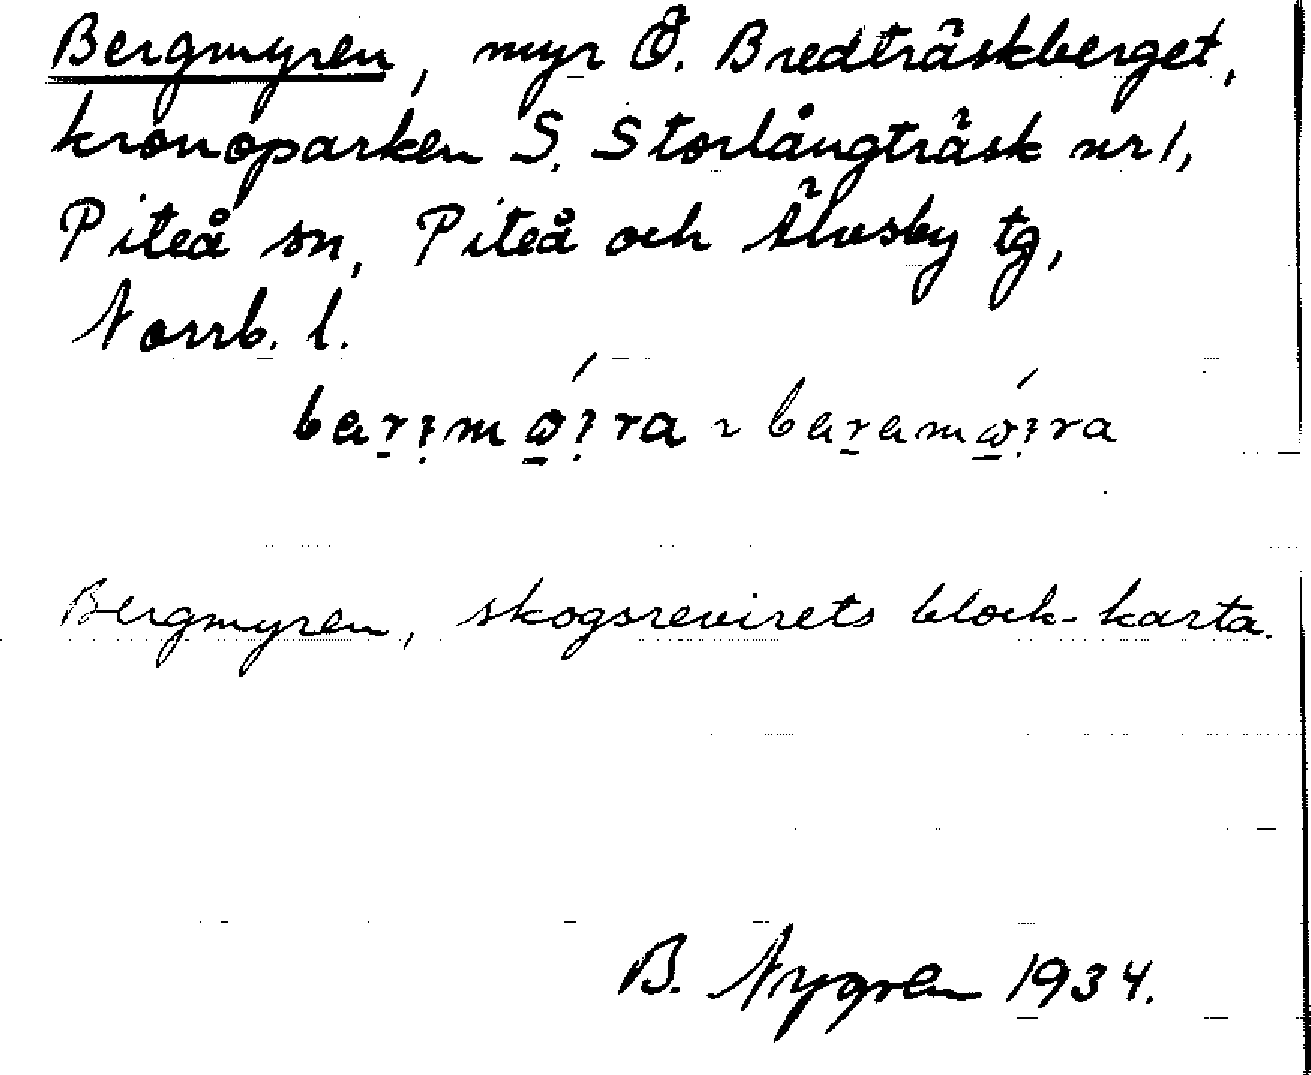 Bergmyren, myr Ö. Bredträskberget,
kronoparken S. Storlångträsk nr 1,
Piteå sn, Piteå och Älvsby tg,
Norrb. l.
Bergmyren, skogsrevirets block-karta.
B. Nygren 1934.